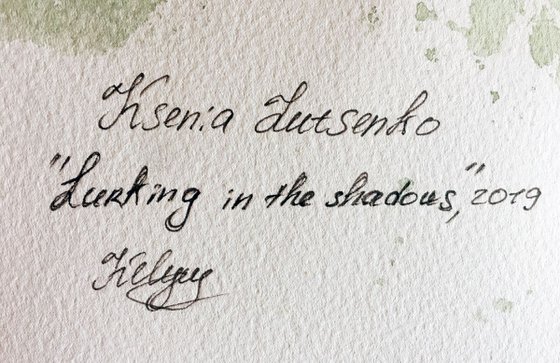 Ksenia Lutsenko
"Lurking in the shadows", 2019